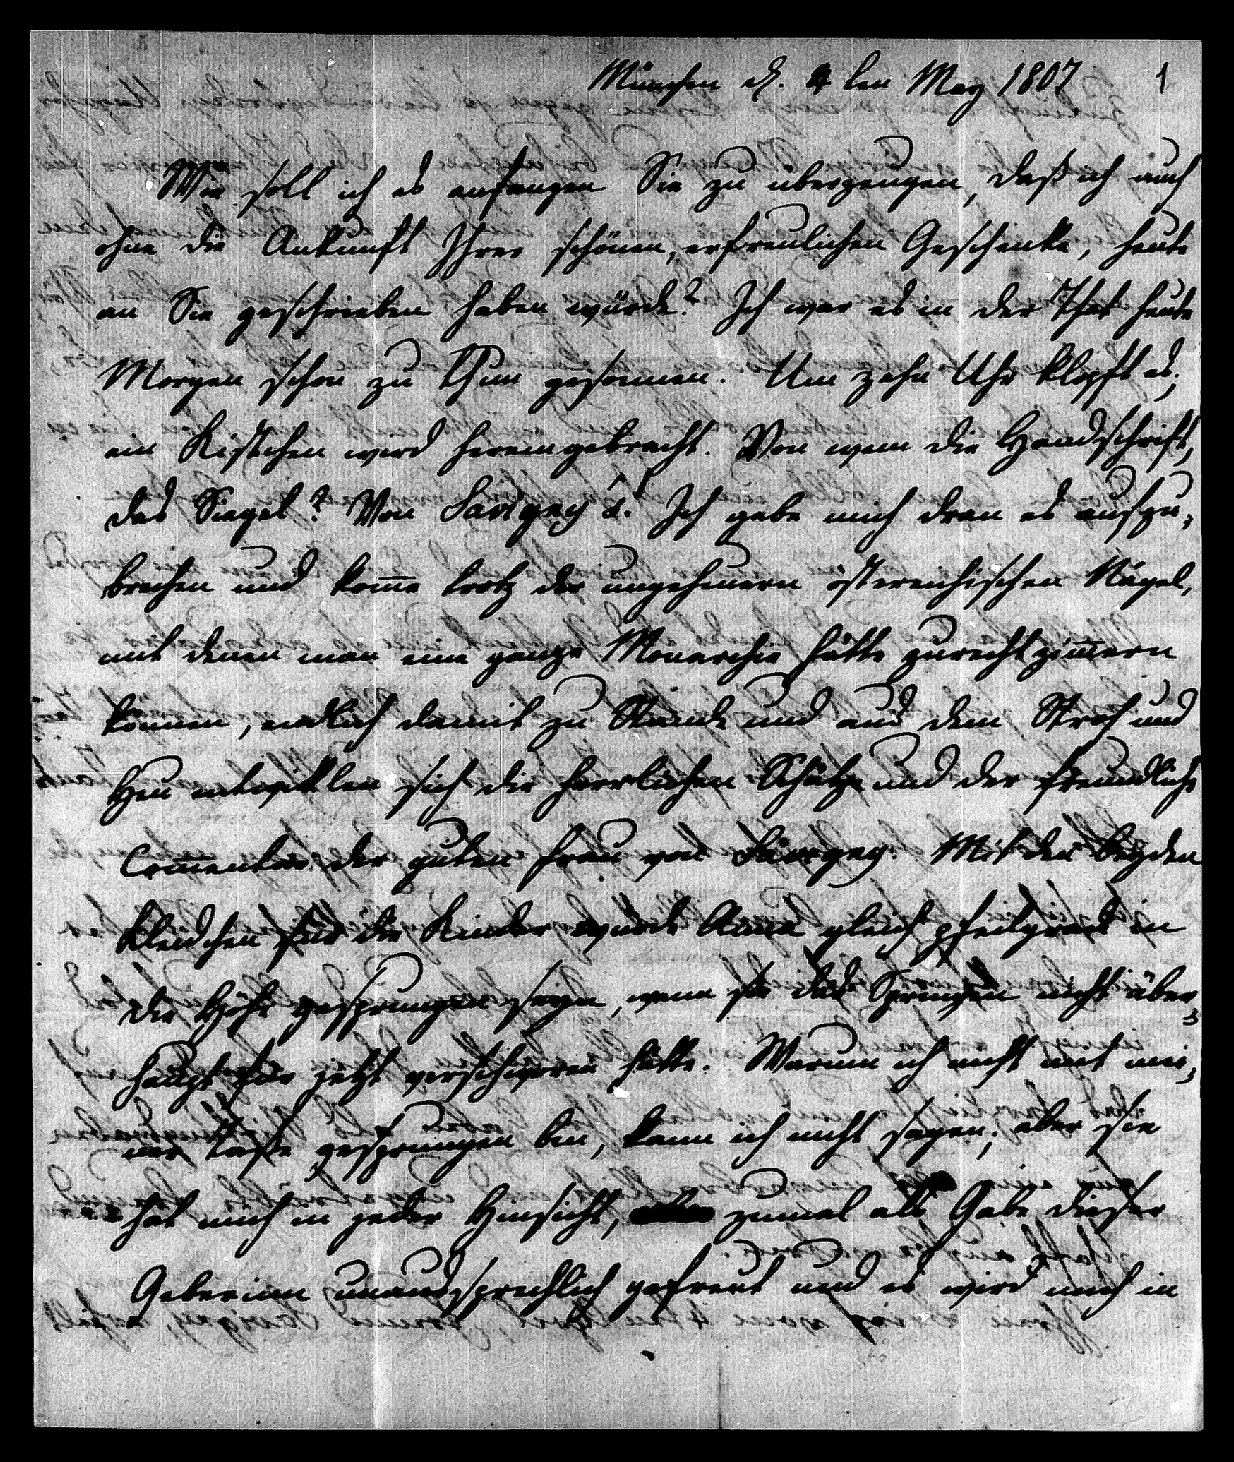 München d. 4 ten May 1807 1
Wie soll ich es anfangen Sie zu überzeugen, daß ich auch
ohne die Ankunft Ihrer schönen, erfreulichen Geschenke, heute
an Sie geschrieben haben würde? Ich war es in der That heute
Morgen schon zu thun gesonnen. Um zehn Uhr klopft es,
ein Kistchen wird hereingebracht. Von wem die Handschrift,
das Siegel? Von Savigny's! Ich gebe mich dran es aufzu-
brechen und kom̅e trotz der ungeheuern österreichischen Nägel,
mit denen man eine ganze Monarchie hätte zurechtzim̅ern
können, endlich damit zu Stande und aus dem Stroh und
Heu entwikklen sich die herrlichen Schätze und der freundliche
Com̅entar der guten Frau von Savigny. Mit den beyden
Kleidchen für die Kinder wurde gleich pfeilgrade in
die Höhe gesprungen seyn, wenn sie das Springen nicht über-
haupt für jetzt verschworen hätte. Warum ich nicht mit mei-
ner Tasse gesprungen bin, kann ich nicht sagen; aber sie
hat mich in jeder Hinsicht, zumal als Gabe dieser
Geberinn unaussprechlich gefreut und es wird mich in